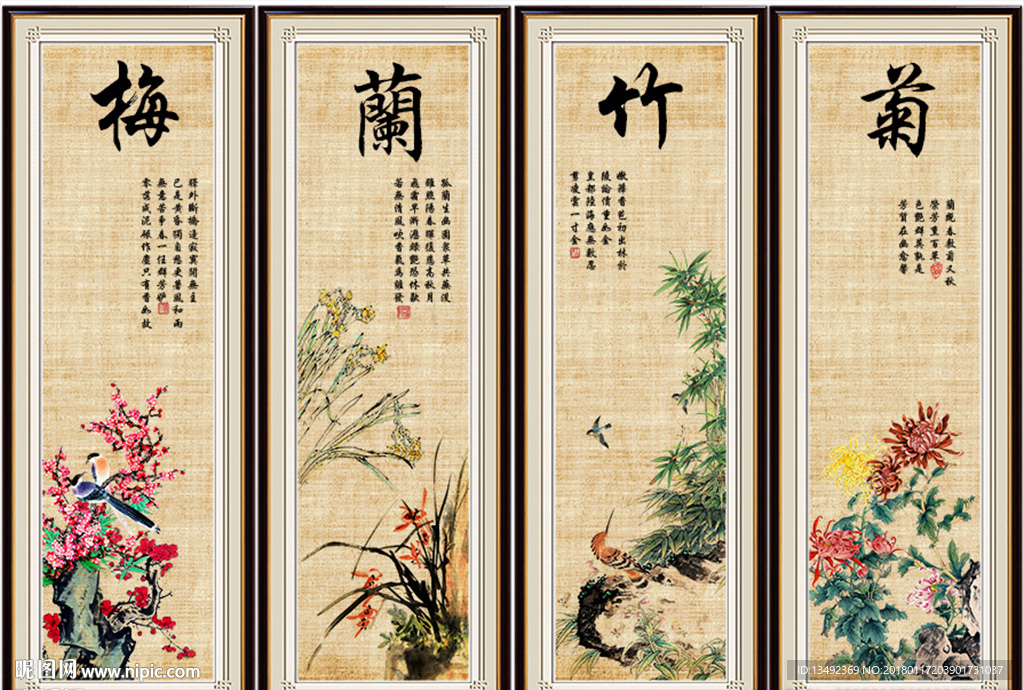 梅
驛外斷橋邊寂寞開無主
已是黃昏獨自愁更著風和雨
無意苦爭春一任群芳妒
零落成泥碾作塵只有香如故
蘭
孤蘭生幽園眾草共蕪沒
雖照陽春暉復悲高秋月
飛霜早淅瀝綠艷恐休歇
若無清風吹香氣為誰發
竹
嫩籜香苞初出林於
陵論價重如金
皇都陸海應無數忍
剪凌雲一寸金
菊
蘭既春敷菊又秋
榮芳熏百草
色艷群英孰是
芳質在幽愈馨
昵图网 www.nipic.com
ID:13492369 NO:20180117203901731037